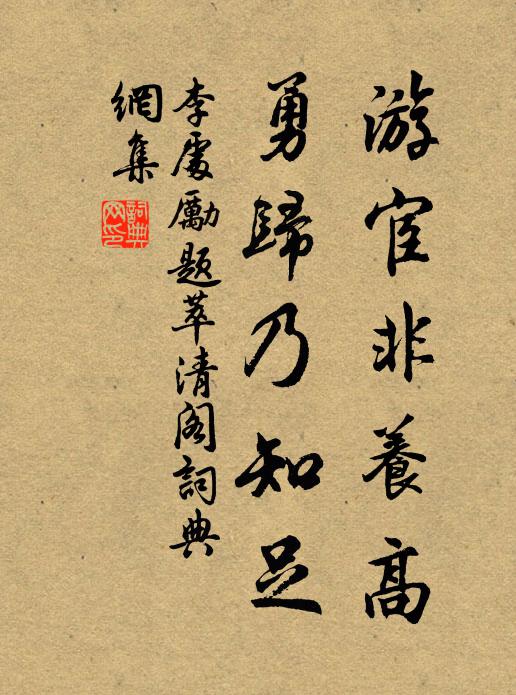 游宦非養高
勇歸乃知足
李處勵題萃清阁詞典
網集
詞典
网印